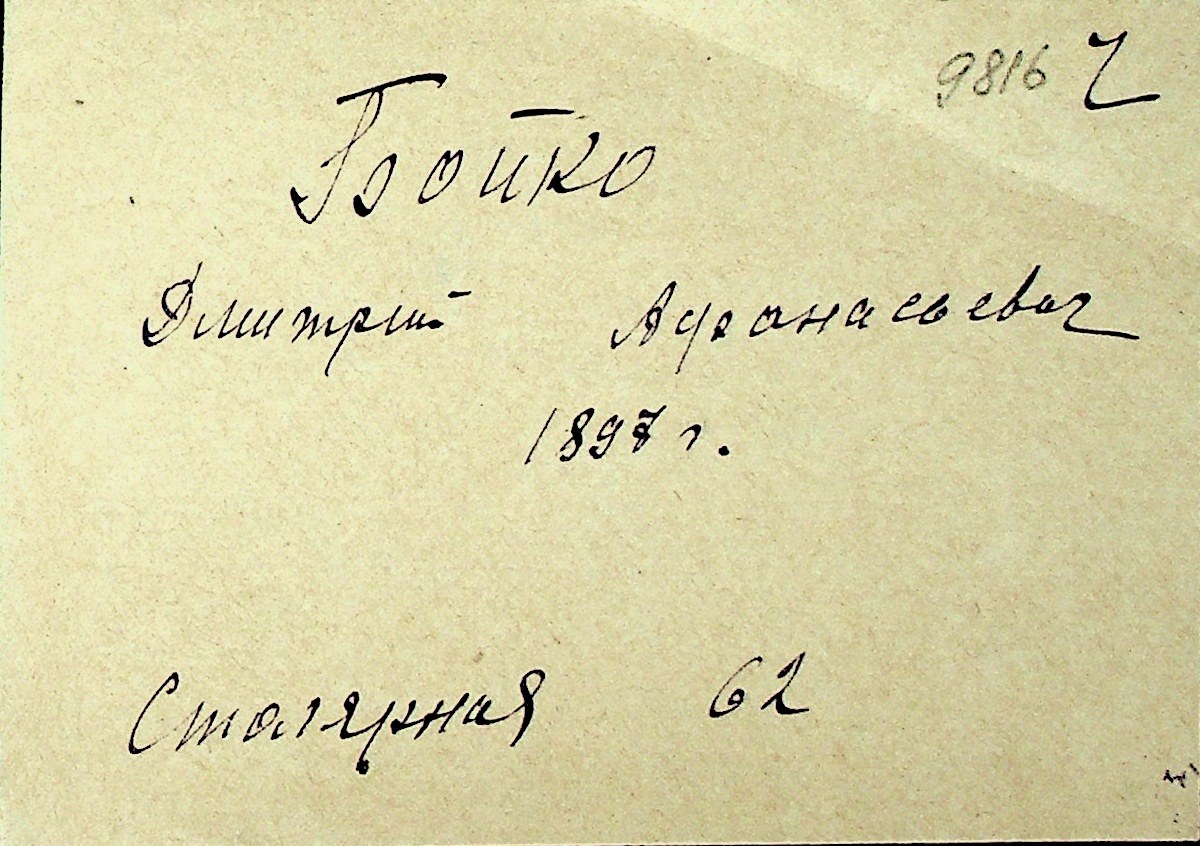 9816 ч
Бойко
Дмитрий Афанасьевич
1897 г.
Столярная 62